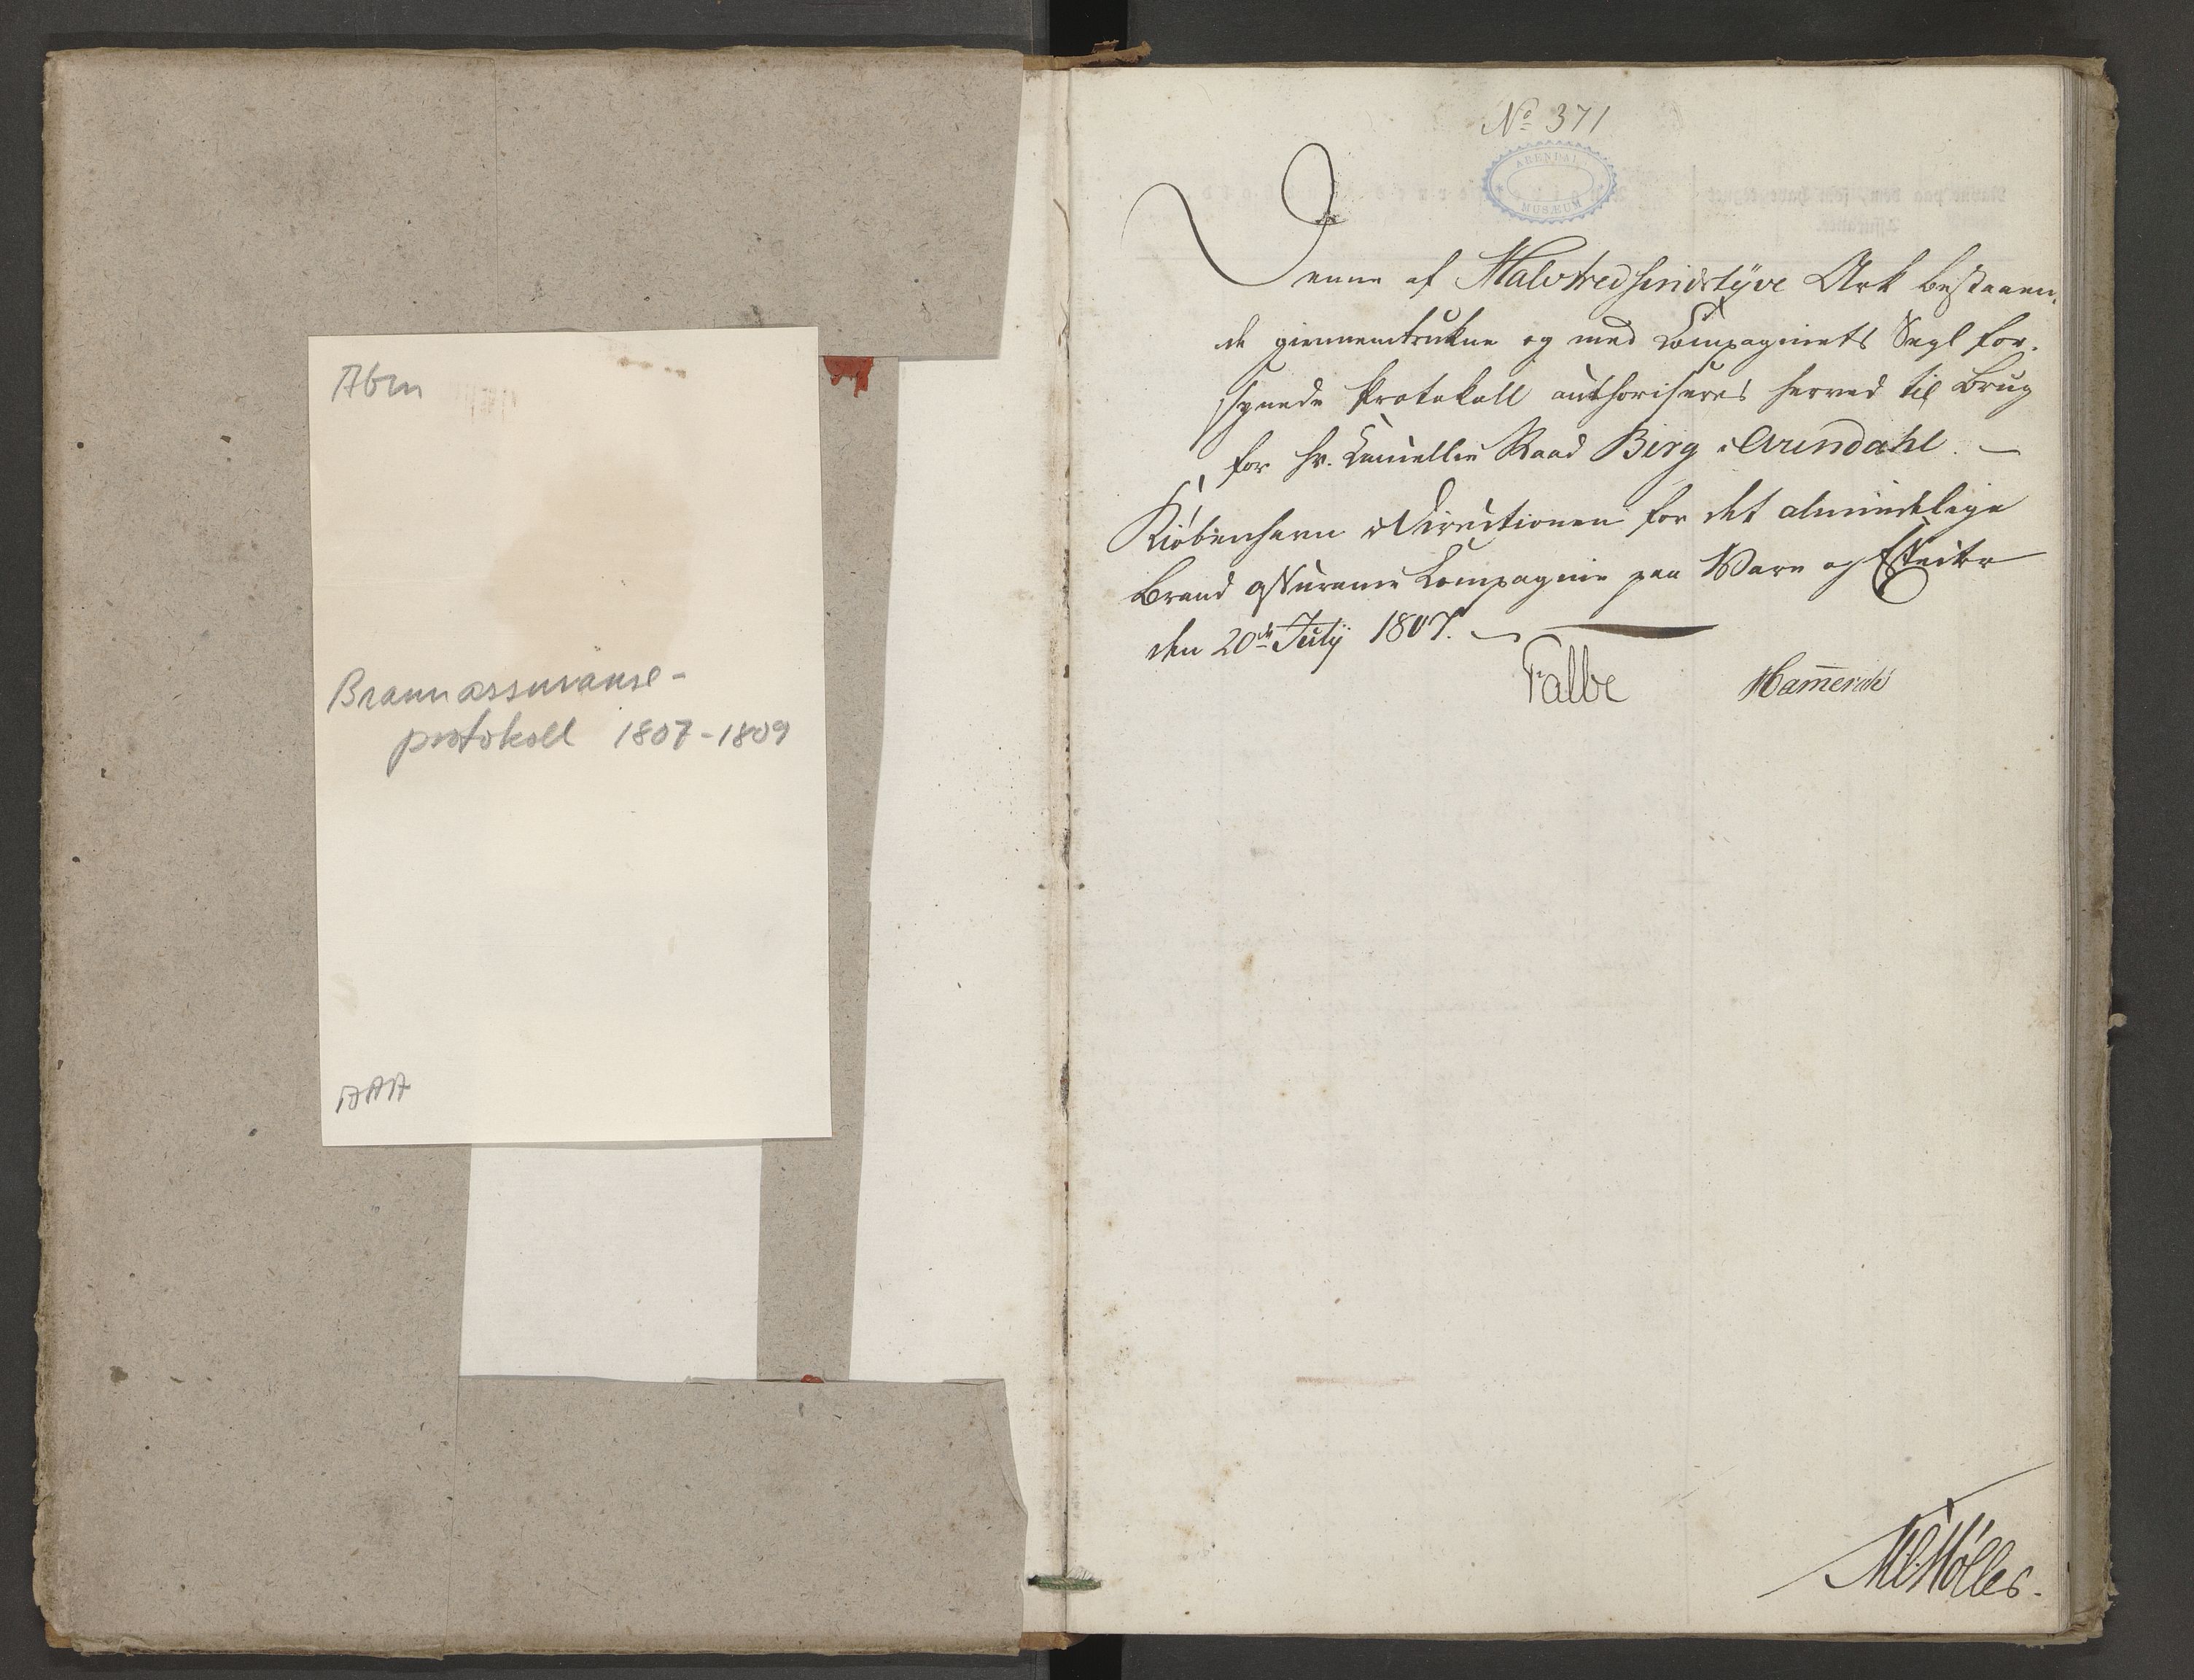 Abm
Brannassuranse-
protokoll 1807-1809
AAA
No 371
ARENDALS
MUSÆUM
Denne af Halvtredsindstÿve Ark bestaaen-
de giennemtrukne og med Compagniets Segl for-
synede Protokoll authoriseres herved til Brug
for Hr. Cancellie Raad Berg i Arendahl. —
Kiöbenhavn i Directionen for det almindelige
Brand Assurance Compagnie paa Vare og Effecter
den 20de Julÿ 1807. —
Falbe Ham̄erich
Møller.